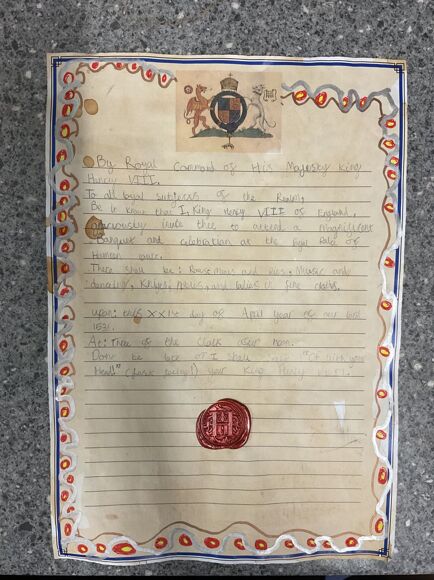 By Royal Command of His Majesty King
Henry VIII.
To all loyal subjects of the Realm,
Be it know that I, King Henry VIII of England,
graciously invite thee to attend a magnificent
Banquet and celebration at the Royal Palace of
There shall be: Roast meats and pies, Music and
dancing, Knights, nobles, and ladies in fine clothes.
upon: this XXIst day of April year of our lord
1531.
At: Three of the Clock after noon.
Dont be late or I shall "Of with your
Head!" your King Henry VIII.
H